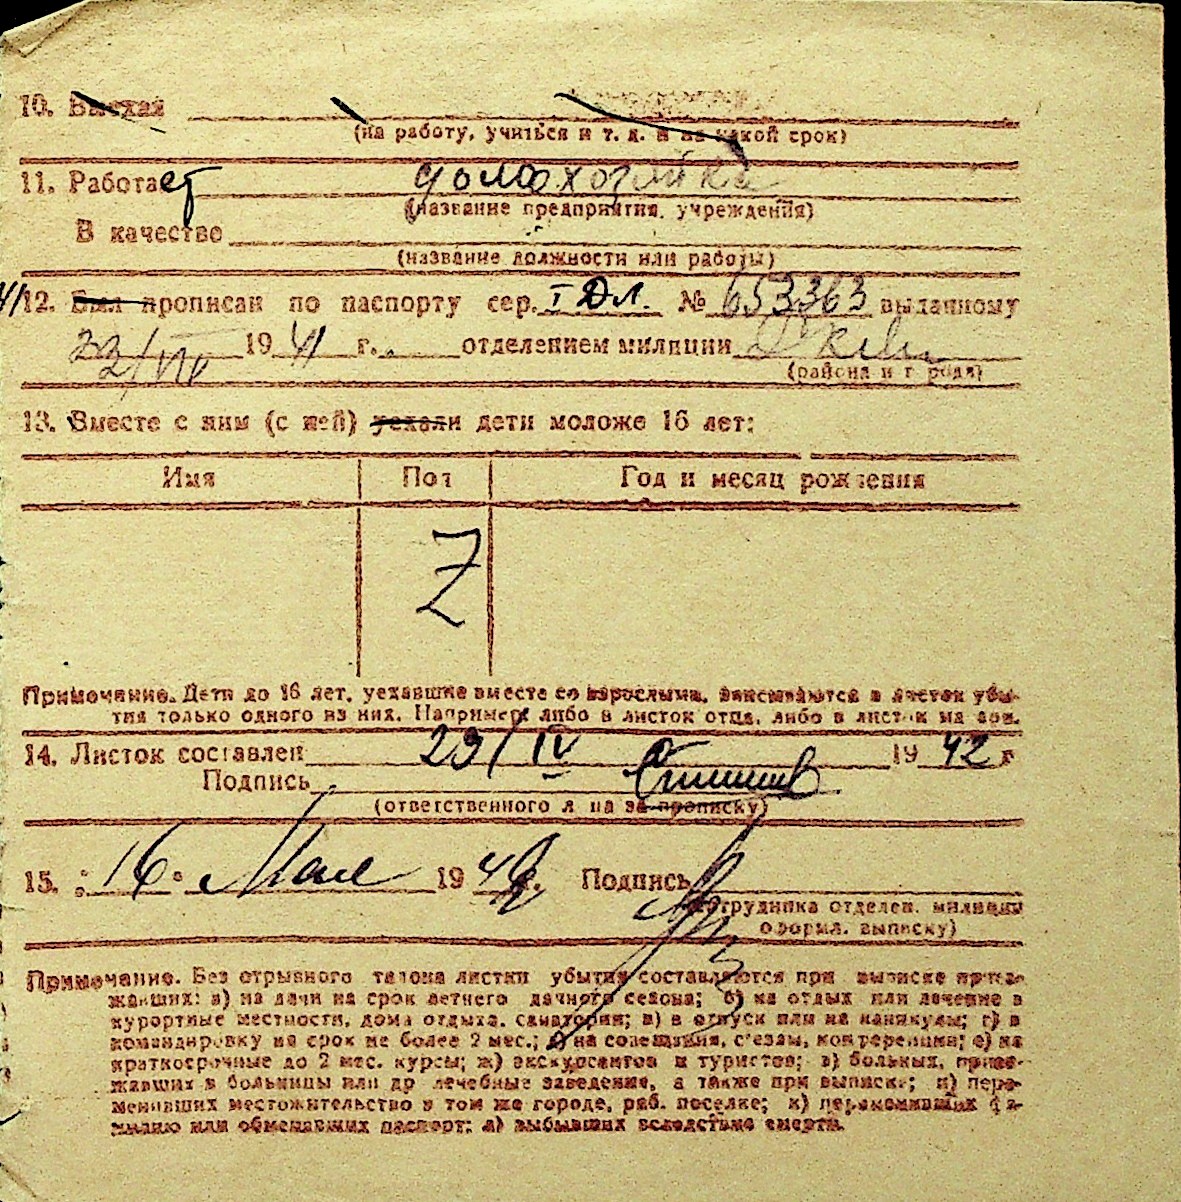 10. Выехал
(на работу, учиться и т. д. и на какой срок)
11. Работает домохозяйка
(название предприятия, учреждения)
В качестве
(название должности или работы)
12. Был прописан по паспорту сер. I ДЛ. № 653363 выданному
22/VII 1941 г. отделением милиции
(района и города)
13. Вместе с ним (с ней) уехали дети моложе 16 лет:
Имя Пол Год и месяц рождения
Z
Примечание. Дети до 16 лет, уехавшие вместе со взрослыми, вписываются в листок убы-
тия только одного из них. Например: либо в листок отца, либо в листок матери.
14. Листок составлен 29/IV 1942 г
Подпись
(ответственного лица за прописку)
15. "16" Мая 1942 г. Подпись
(сотрудника отделен. милиции
оформл. выписку)
Примечание. Без отрывного талона листки убытия составляются при выписке приез-
жавших: а) на дачи на срок летнего дачного сезона; б) на отдых или лечение в
курортные местности, дома отдыха, санатории; в) в отпуск или на каникулы; г) в
командировку на срок не более 2 мес.; д) на совещания, съезды, конференции; е) на
краткосрочные до 2 мес. курсы; ж) экскурсантов и туристов; з) больных, приез-
жавших в больницы или др лечебные заведения, а также при выписке; и) пере-
менивших местожительство в том же городе, раб. поселке; к) переменивших фа-
милию или обменявших паспорт; л) выбывших вследствие смерти.